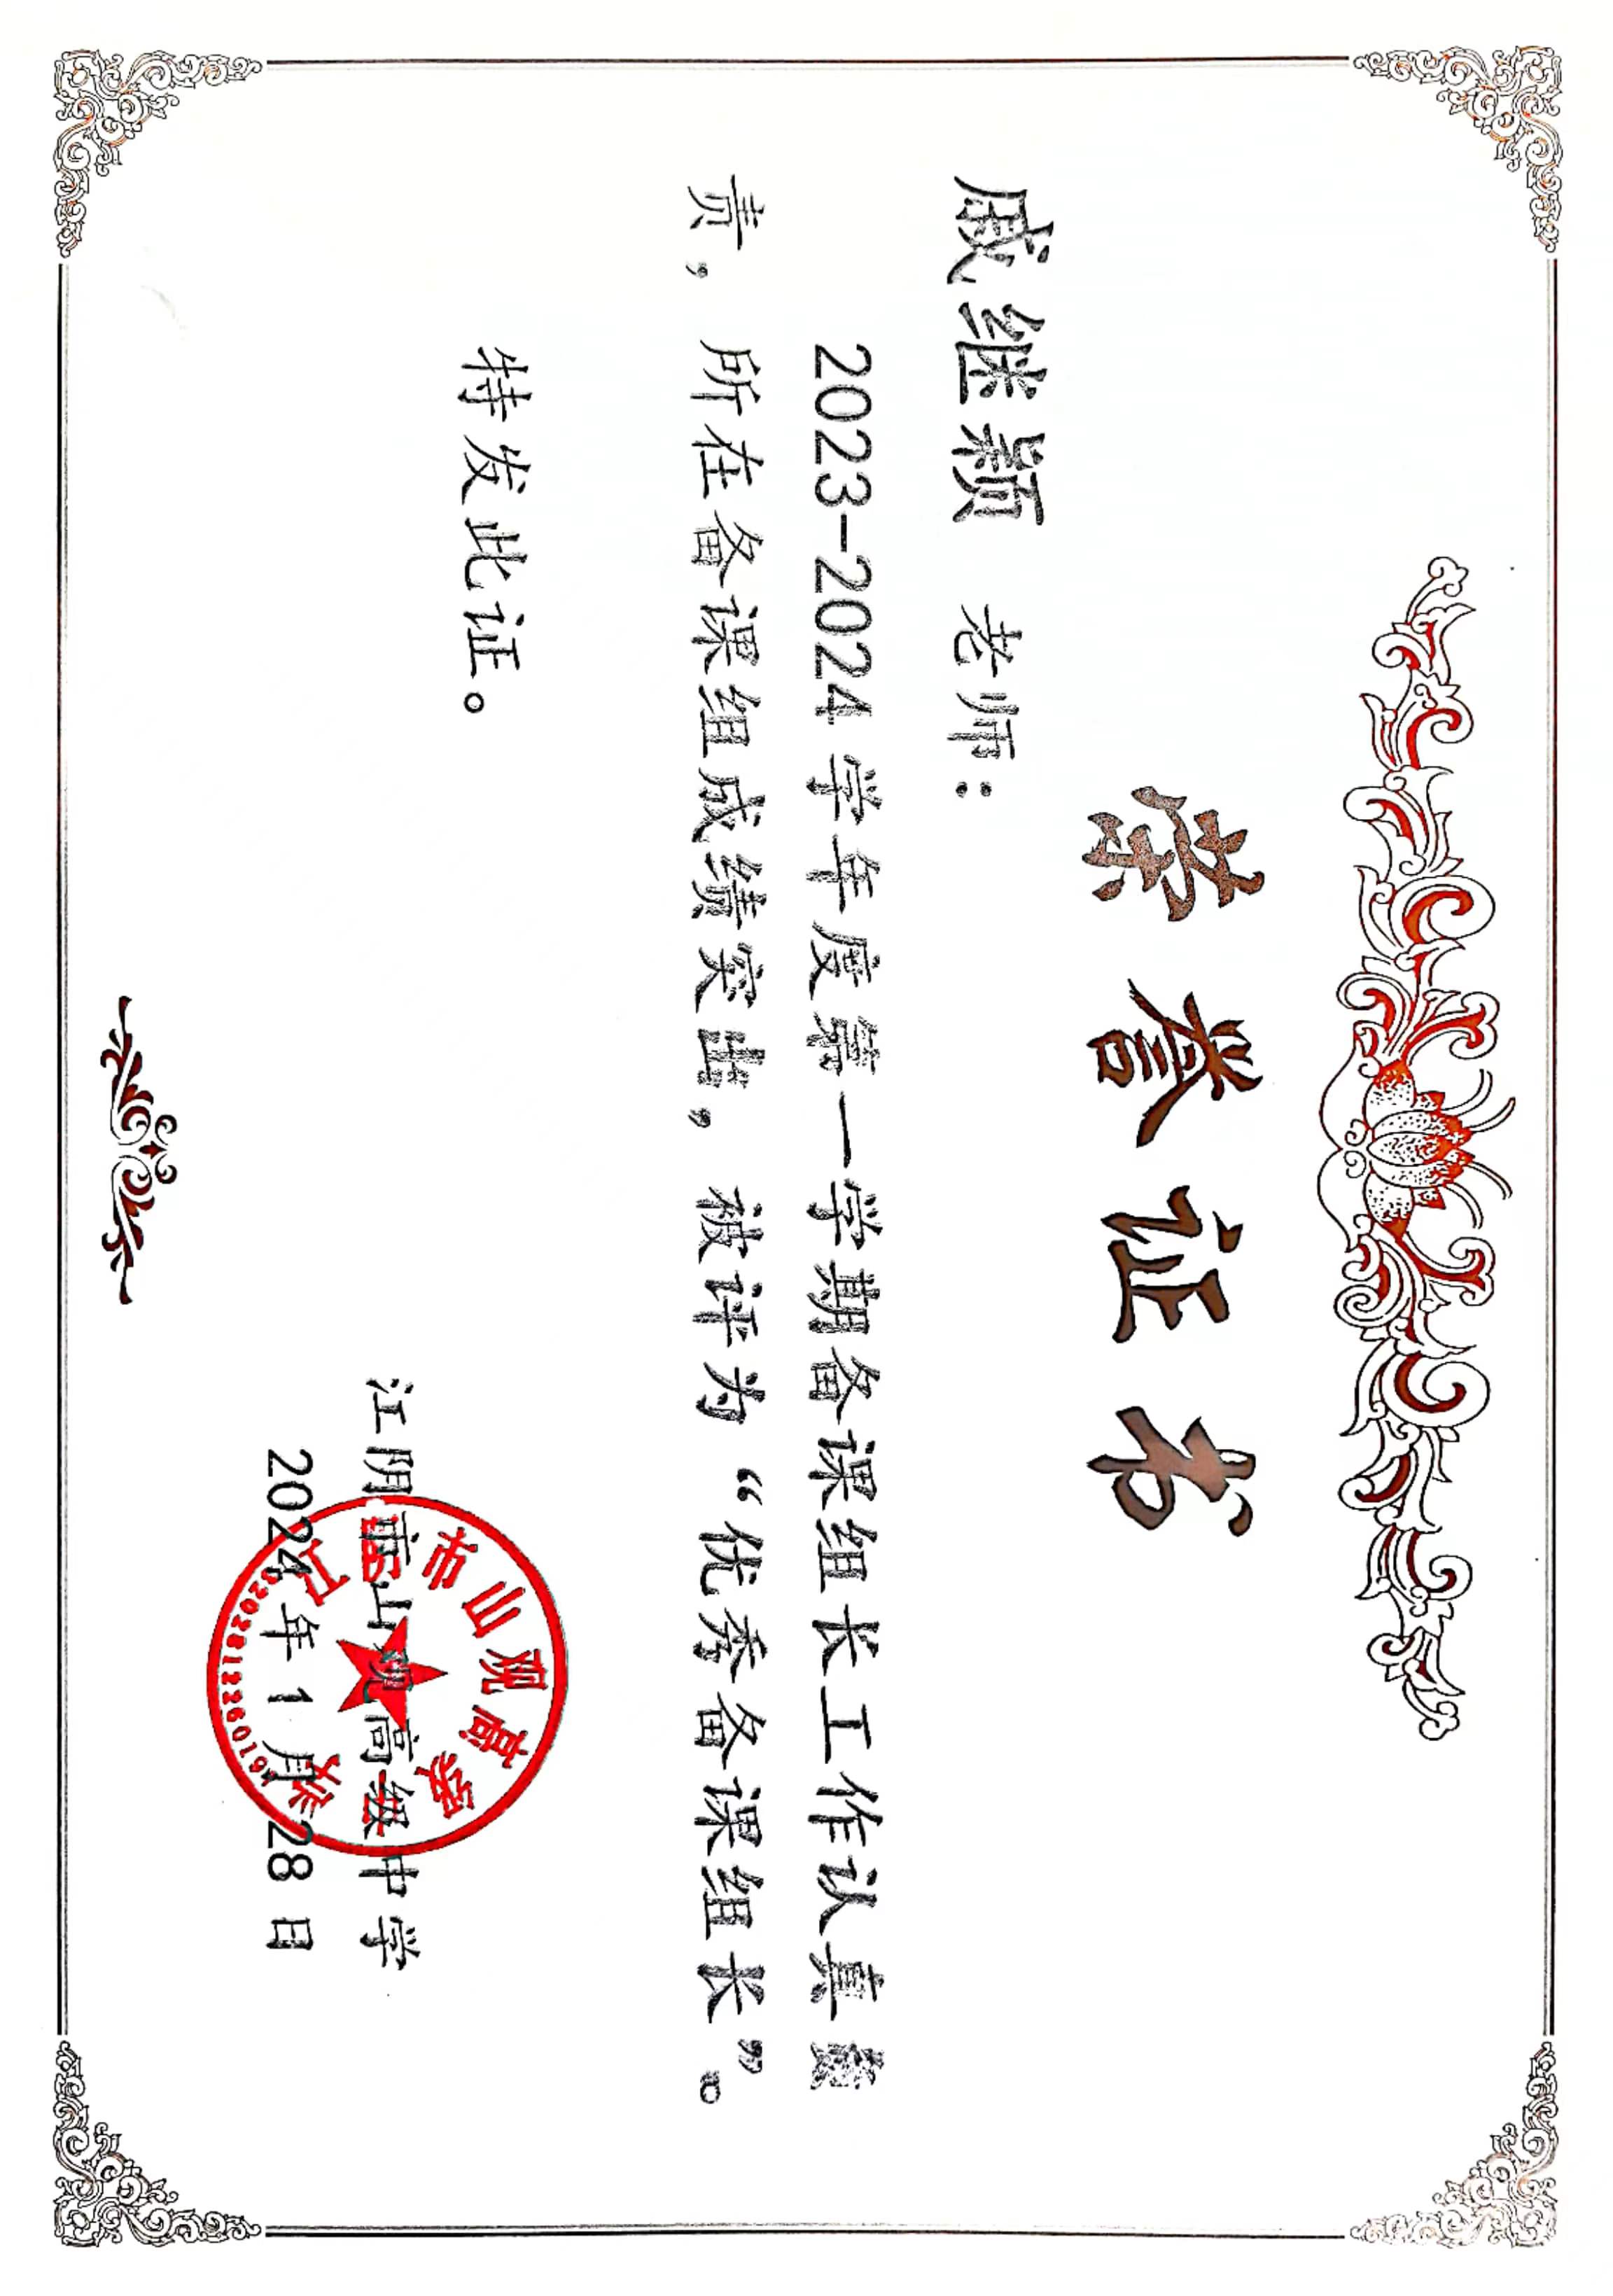 荣誉证书
戚继颖 老师：
2023-2024 学年度第一学期备课组长工作认真
责，所在备课组成绩突出，被评为“优秀备课组长”。
特发此证。
江阴市山观高级中学
2024年1月28日
市山观高级